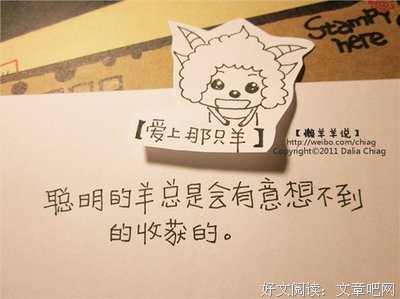 Stamp
here
【爱上那只羊】
【懒羊羊说】
http://weibo.com/chiag
Copyright©2011 Dalia Chiag
聪明的羊总是会有意想不到
的收获的。
好文阅读：文章吧网